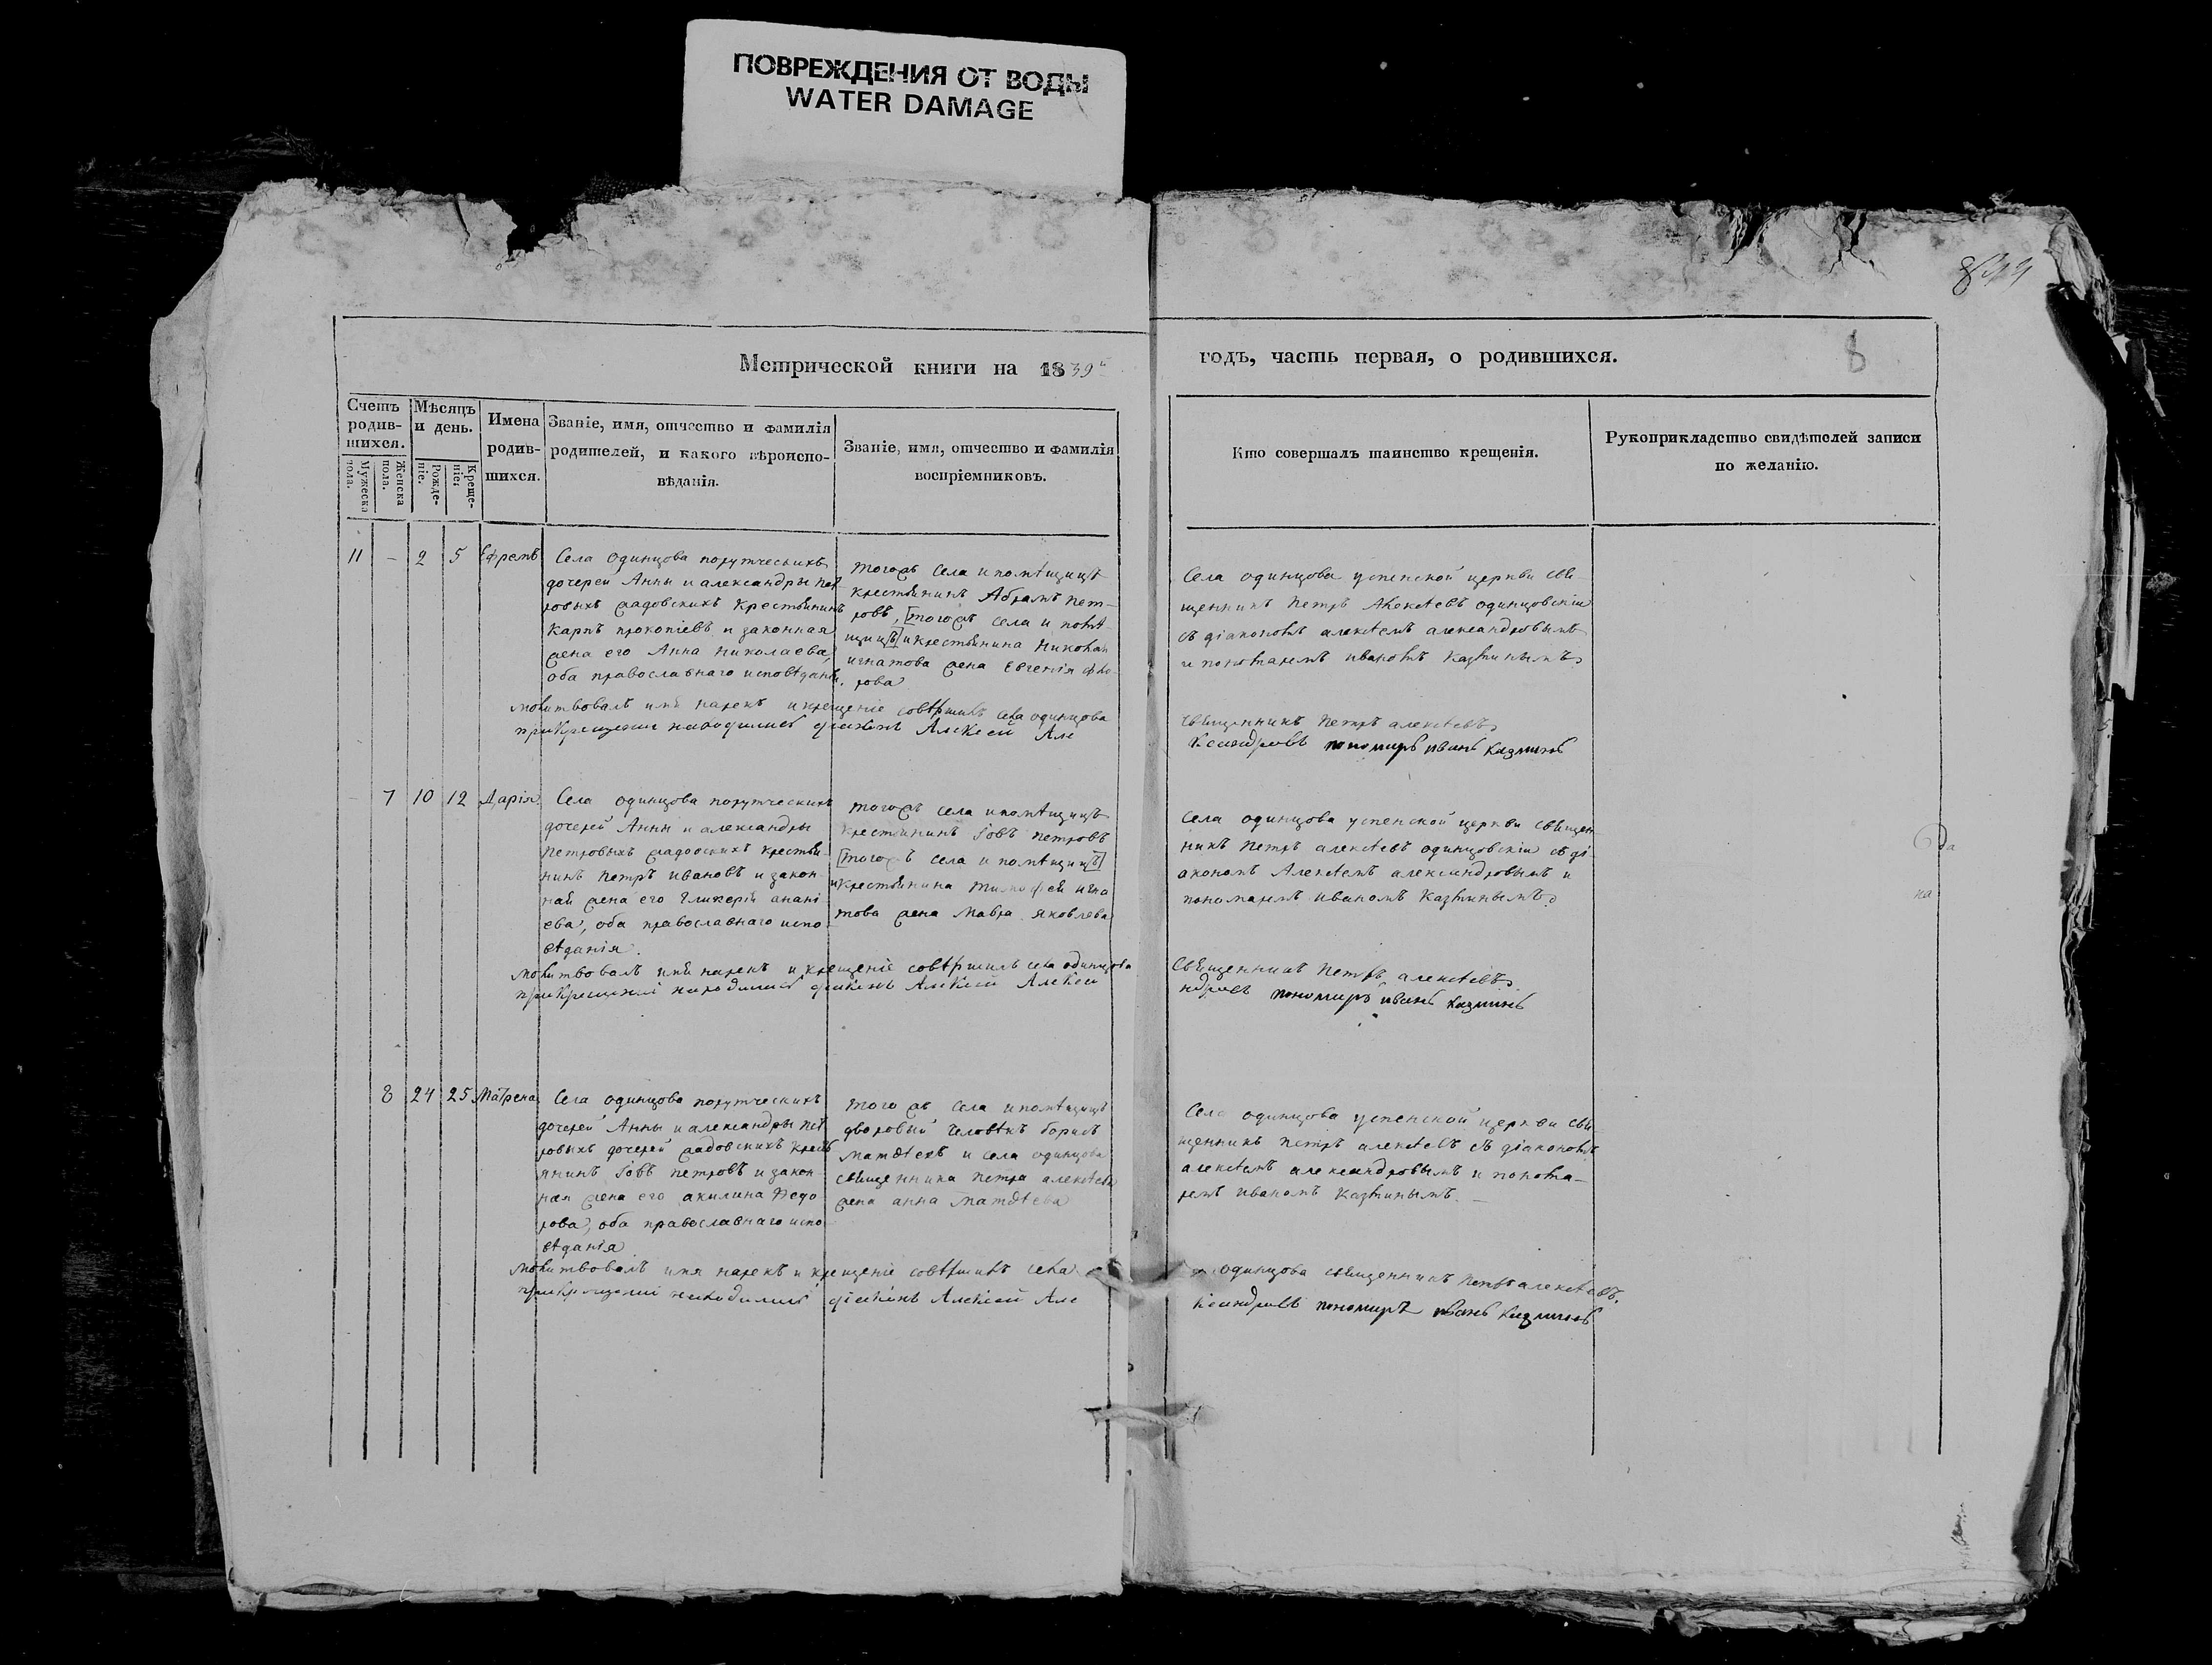 ПОВРЕЖДЕНИЯ ОТ ВОДЫ
WATER DAMAGE
Метрической книги на 1839
годъ, часть первая, о родившихся.
8
Счетъ родив-шихся.
Мужеска пола.
Женска пола.
Мѣсяцъ и день.
Рожде-ніе.
Креще-ніе.
Имена родив-шихся.
Званіе, имя, отчество и фамилія
родителей, и какого вѣроиспо-
вѣданія.
Званіе, имя, отчество и фамилія
воспріемниковъ.
Кто совершалъ таинство крещенія.
Рукоприкладство свидѣтелей записи
по желанію.
11 - 2 5 Ефремъ
Села одинцова порутческихъ
дочерей Анны и александры пет
ровыхъ жадовскихъ крестьянинъ
карпъ прокопіевъ и законная
жена его Анна николаева,
оба православнаго исповѣданія.
тогожъ села и помѣщицъ
крестьянинъ Абрамъ пет-
ровъ, [тогожъ села и помѣ-
щицъ] крестьянина николая
игнатова жена Евгенія фло-
рова
Села одинцова успенской церкви свя-
щенникъ петръ Алексѣевъ одинцовскій
съ діакономъ алексѣемъ александровымъ
и пономаремъ иваномъ казминымъ
молитвовалъ имя нарекъ и крещеніе совѣршилъ села одинцова
священникъ петръ алексѣевъ
при крещеніи находились діаконъ Алексей Але
ксандровъ пономаръ иванъ казминъ
7 10 12 дарія
Села одинцова порутческихъ
дочерей Анны и александры
петровыхъ жадовскихъ крестья-
нинъ петръ ивановъ и закон-
ная жена его гликерія анані
ева, оба православнаго испо-
вѣданія.
тогожъ села и помѣщицъ
крестьянинъ Іовъ петровъ
[тогожъ села и помѣщицъ]
и крестьянина тимофея игна
това жена мавра яковлева
Села одинцова успенской церкви священ-
никъ петръ алексѣевъ одинцовскій съ ді-
акономъ Алексѣемъ александровымъ и
пономаремъ иваномъ казминымъ
молитвовалъ имя нарекъ и крещеніе совѣршилъ села одинцова
Священникъ петръ алексѣевъ
при крещеніи находились діаконъ Алексей Алекса
ндровъ пономаръ иванъ казминъ
8 24 25 матрена
Села одинцова порутческихъ
дочерей Анны и александры пет
ровыхъ дочерей жадовскихъ кресть
янинъ Іовъ петровъ и закон-
ная жена его акилина Ѳедо
рова, оба православнаго испо-
вѣданія
тогожъ села и помѣщицъ
дворовый человѣкъ борисъ
матѳѣевъ и села одинцова
священника петра алексѣева
жена анна матѳѣева
Села одинцова успенской церкви свя-
щенникъ петръ алексѣевъ съ діакономъ
алексѣемъ александровымъ и понома-
ремъ иваномъ казминымъ.
молитвовалъ имя нарекъ и крещеніе совѣршилъ села
одинцова священникъ петръ алексѣевъ.
при крещеніи находились діаконъ Алексей Але
ксандровъ пономаръ иванъ казминъ
да
на